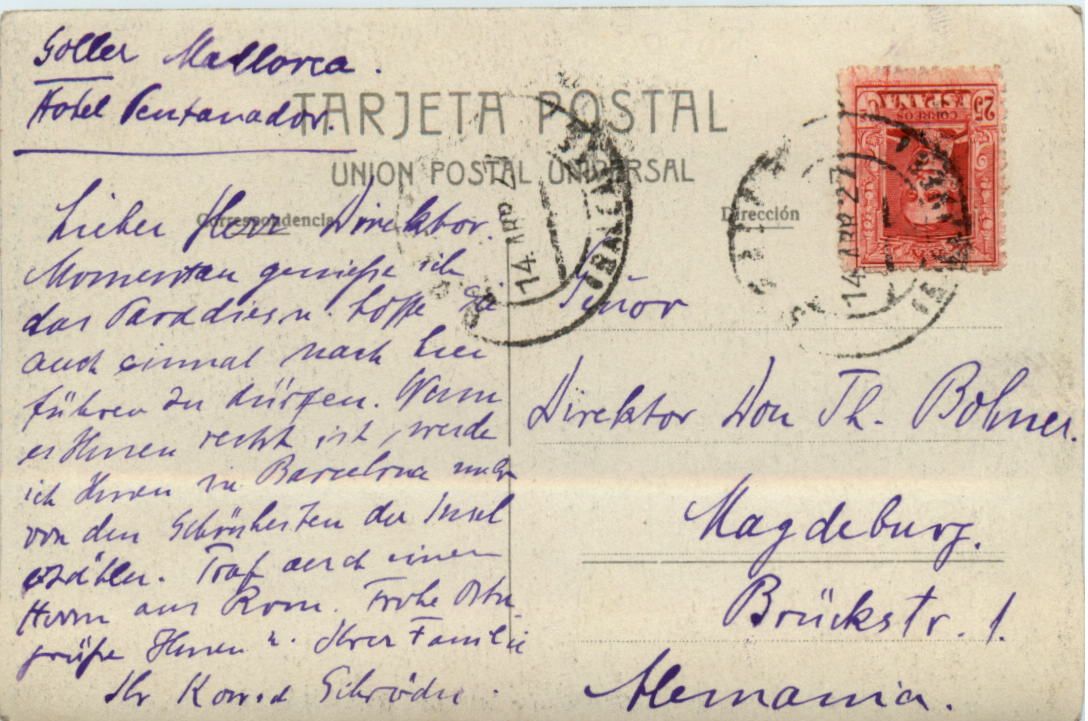 Soller Mallorca.
Hotel Pentanador.
TARJETA POSTAL
UNION POSTAL UNIVERSAL
Correspondencia
Dirección
Lieber Herr Direktor.
Momentan genieße ich
das Paradies u. hoffe Sie
auch einmal nach hier
führen zu dürfen. Wenn
es Ihnen recht ist, werde
ich Ihnen in Barcelona mehr
von den Schönheiten der Insel
erzählen. Traf auch einen
Herrn aus Rom. Frohe Oster
grüße Ihnen u. Ihrer Familie
Ihr Konrad Schröder.
Señor
Direktor Don Th. Bohner.
Magdeburg.
Brückstr. 1.
Alemania.
14 ABR 27
14 ABR 27
CORREOS
ESPAÑA
25 C